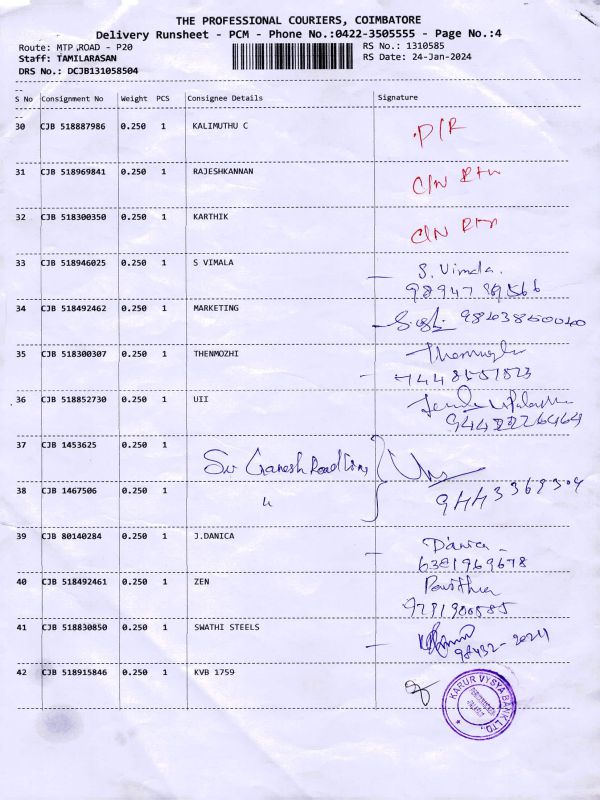 THE PROFESSIONAL COURIERS, COIMBATORE
Delivery Runsheet - PCM - Phone No.:0422-3505555 - Page No.:4
Route: MTP.ROAD - P20
RS No.: 1310585
Staff: TAMILARASAN
RS Date: 24-Jan-2024
DRS No.: DCJB131058504
S No Consignment No Weight PCS Consignee Details Signature
30 CJB 518887986 0.250 1 KALIMUTHU C P/R
31 CJB 518969841 0.250 1 RAJESHKANNAN C/N Rtn
32 CJB 518300350 0.250 1 KARTHIK C/N Rtn
33 CJB 518946025 0.250 1 S VIMALA S. Vimala.
34 CJB 518492462 0.250 1 MARKETING
35 CJB 518300307 0.250 1 THENMOZHI
36 CJB 518852730 0.250 1 UII
37 CJB 1453625
Sri Ganesh Road Line
9443369304
38 CJB 1467506 0.250 1 "
39 CJB 80140284 0.250 1 J.DANICA Danica
6381969678
40 CJB 518492461 0.250 1 ZEN
9791900585
41 CJB 518830850 0.250 1 SWATHI STEELS
98432-20211
42 CJB 518915846 0.250 1 KVB 1759
KARUR VYSYA BANK LTD.,